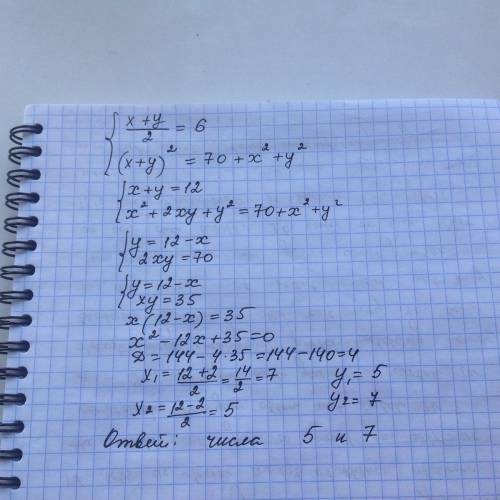 { (x+y)/2 = 6
(x+y)² = 70 + x² + y²
{ x+y = 12
x² + 2xy + y² = 70 + x² + y²
{ y = 12 - x
2xy = 70
{ y = 12 - x
xy = 35
x(12-x) = 35
x² - 12x + 35 = 0
D = 144 - 4·35 = 144 - 140 = 4
x₁ = (12+2)/2 = 14/2 = 7 y₁ = 5
x₂ = (12-2)/2 = 5 y₂ = 7
Ответ: числа 5 и 7